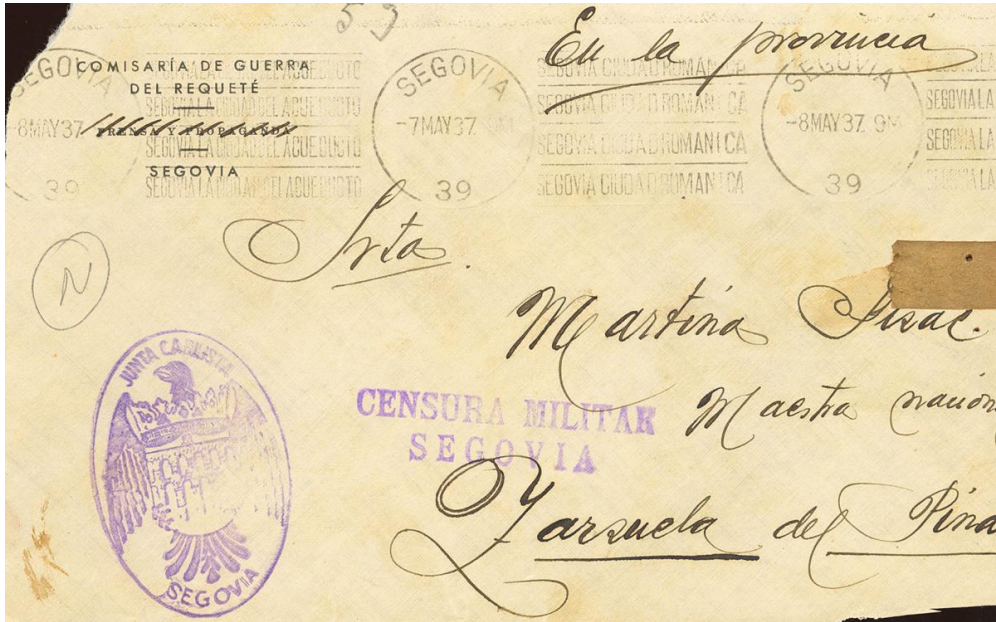 5
En la provincia
COMISARÍA DE GUERRA
DEL REQUETÉ
PRENSA Y PROPAGANDA
SEGOVIA
SEGOVIA
-8MAY37
39
SEGOVIA LA CIUDAD DEL ACUEDUCTO
SEGOVIA LA CIUDAD DEL ACUEDUCTO
SEGOVIA LA CIUDAD DEL ACUEDUCTO
SEGOVIA LA CIUDAD DEL ACUEDUCTO
SEGOVIA
-7MAY37
39
SEGOVIA CIUDAD ROMANICA
SEGOVIA CIUDAD ROMANICA
SEGOVIA CIUDAD ROMANICA
SEGOVIA CIUDAD ROMANICA
SEGOVIA
-8MAY37. 9M
39
SEGOVIA LA
SEGOVIA LA
SEGOVIA LA
Srta.
N
Martina
Maestra nacion
Zarzuela del Pina
JUNTA CARLISTA
SEGOVIA
CENSURA MILITAR
SEGOVIA